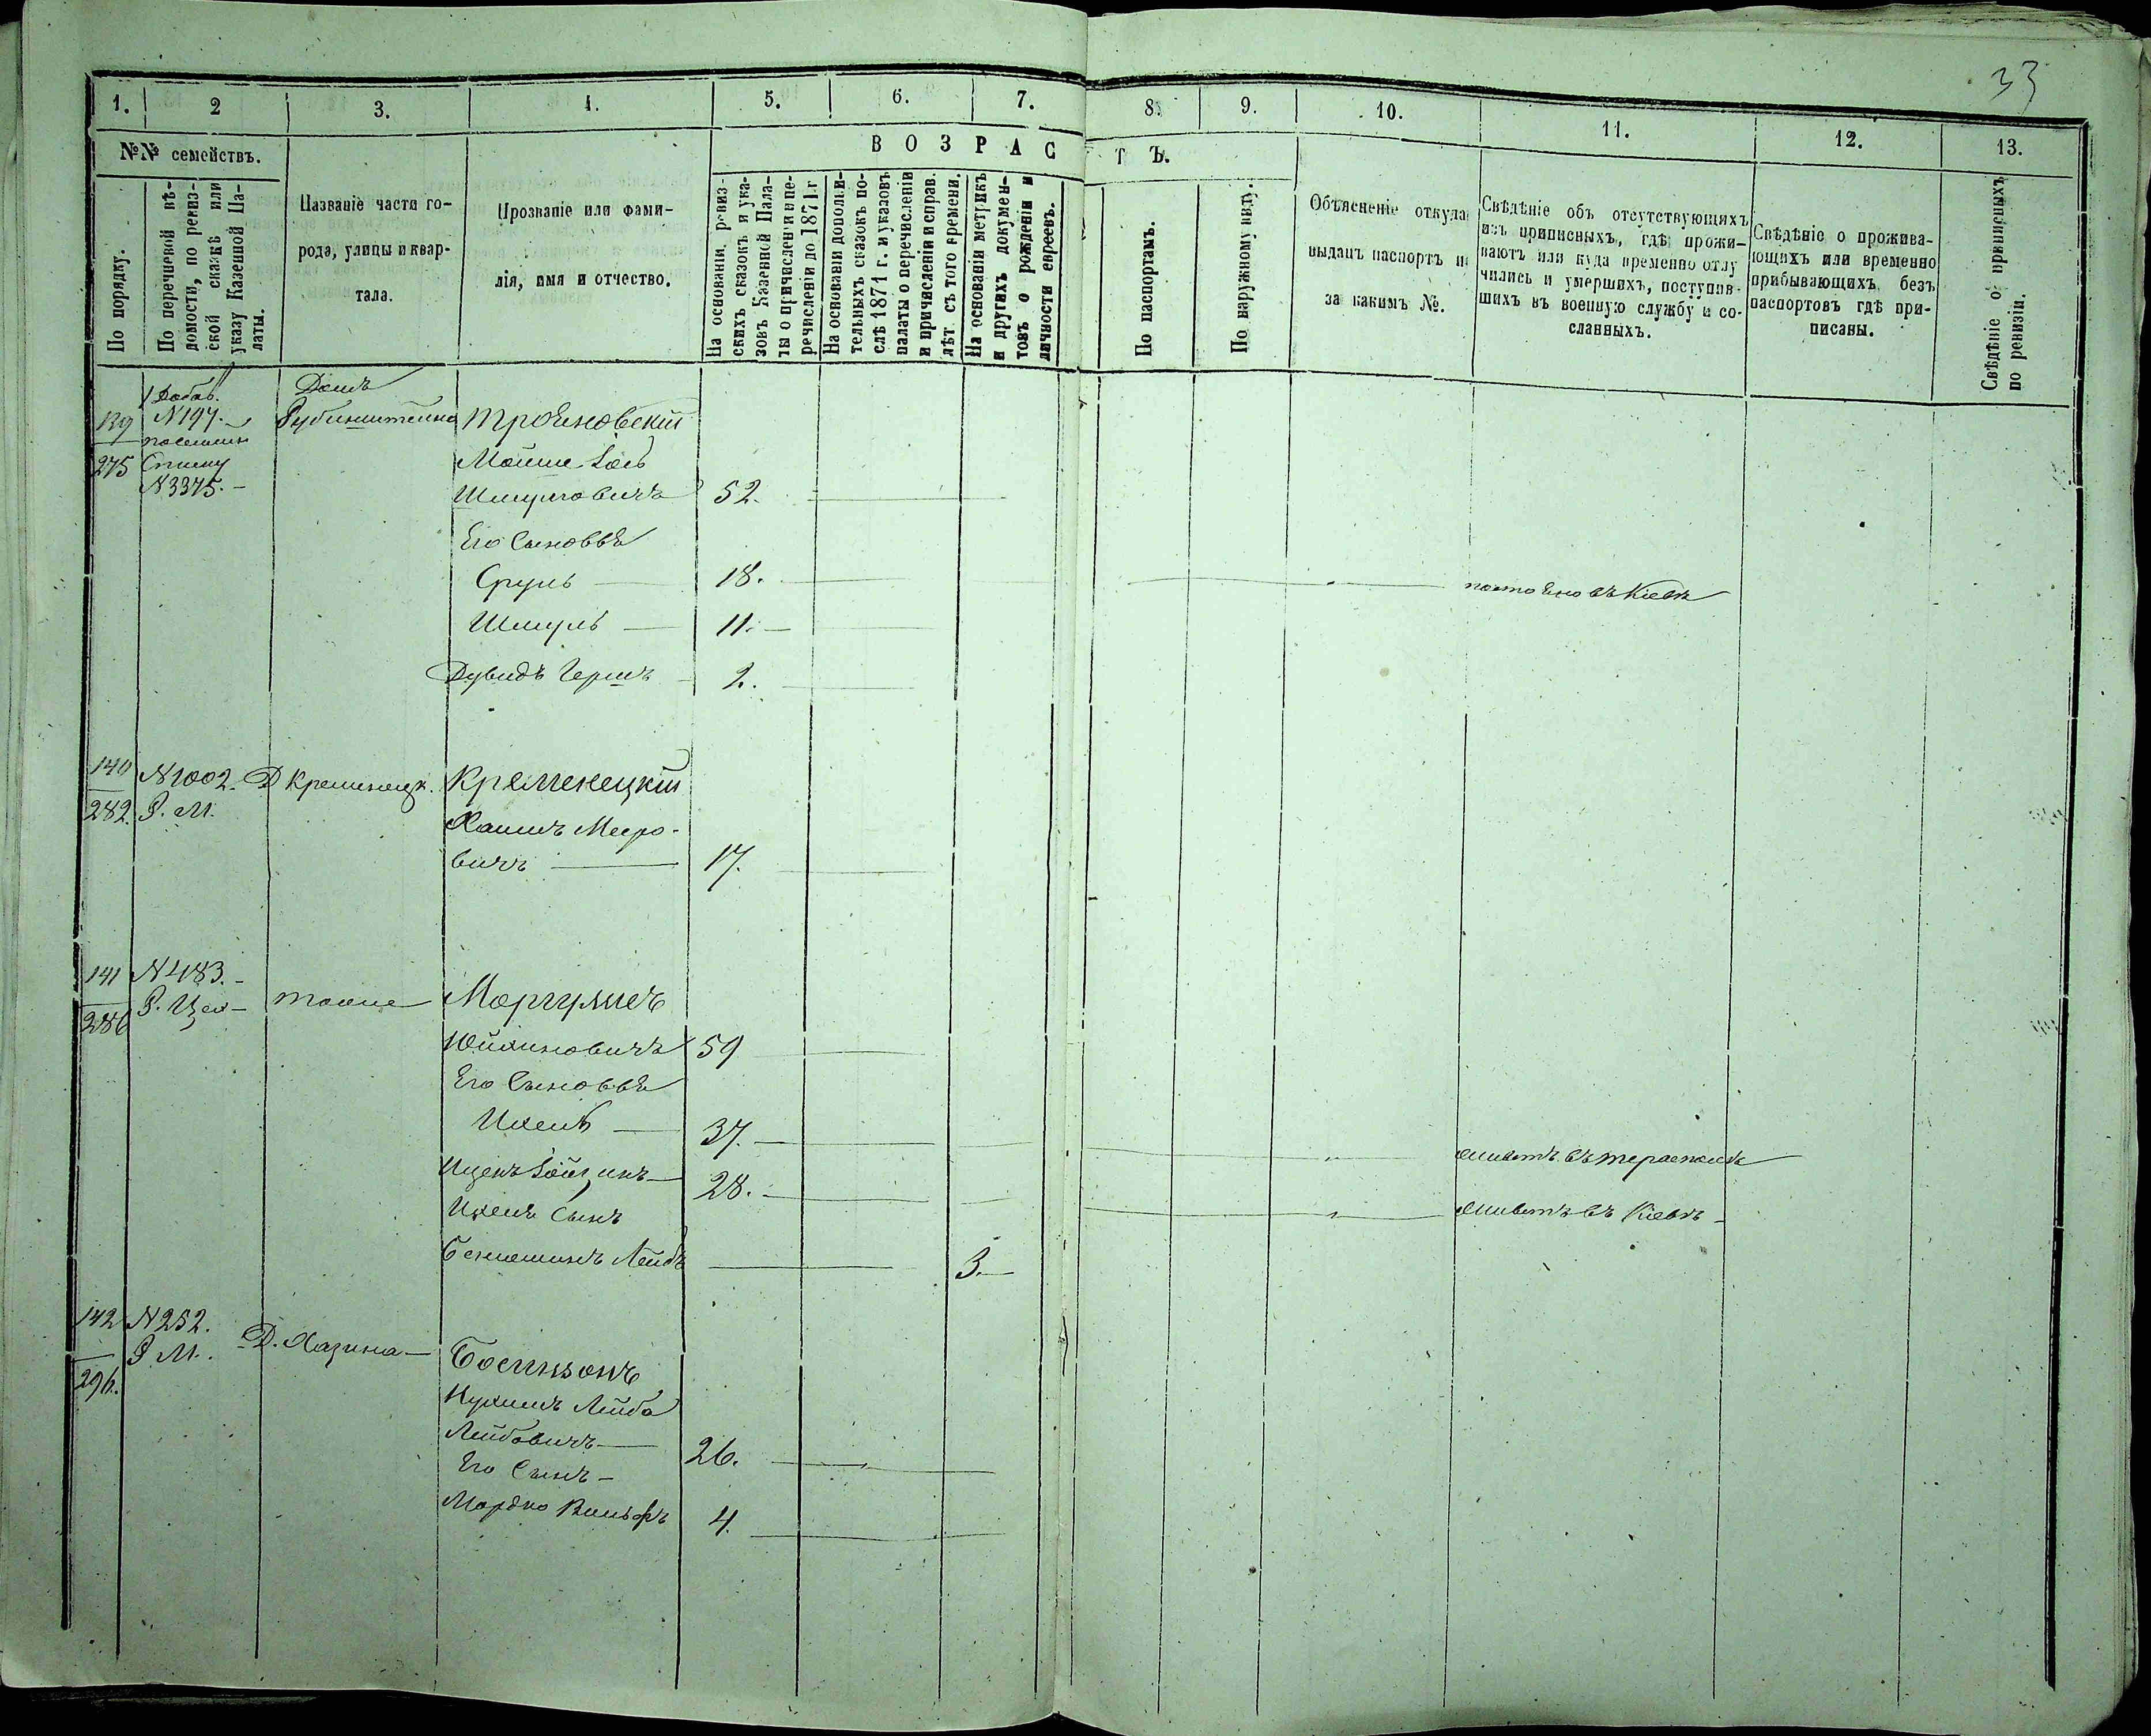 33
1. 2 3. 4. 5. 6. 7. 8. 9. 10. 11. 12. 13.
№№ семействъ.
По порядку.
По перечневой вѣ-
домости, по ревиз-
ской сказкѣ или
указу Казенной Па-
латы.
Названіе части го-
рода, улицы и квар-
тала.
Прозваніе или фами-
лія, имя и отчество.
ВОЗРАСТЪ.
На основаніи ревиз-
скихъ сказокъ и ука-
зовъ Казенной Пала-
ты о причисленіи и пе-
речисленіи до 1871 г.
На основаніи дополни-
тельныхъ сказокъ по-
слѣ 1871 г. и указовъ
палаты о перечисленіи
и причисленіи и справ.
лѣт съ того времени.
На основаніи метрикъ
и другихъ докумен-
товъ о рожденіи и
личности евреевъ.
По паспортамъ.
По наружному виду.
Объясненіе откуда
выданъ паспортъ и
за какимъ №.
Свѣдѣніе объ отсутствующихъ
изъ приписныхъ, гдѣ прожи-
ваютъ или куда временно отлу
чились и умершихъ, поступив-
шихъ въ военную службу и со-
сланныхъ.
Свѣдѣніе о прожива-
ющихъ или временно
прибывающихъ безъ
паспортовъ гдѣ при-
писаны.
Свѣдѣніе о приписныхъ
по ревизіи.
Домъ
139 N 197. Рубинштейна Трояновскій
275 Списку Мошко Іось
N 3375.- Шмулевичъ 52.
Его Сыновья
Сруль 18. постояно въ Кіевѣ
Шмуль 11.
Дувидъ Гершъ 2.
140 N 1002. Д Кременецк. Кременецкій
282. Р. М. Хаимъ Мееро-
вичъ 17.
141 N 483. Моргулисъ
286 Р. Цех- тоже
59
Его Сыновья
Ихель 37. живетъ въ Тераспольѣ
Ицекъ 28. живетъ въ Кіевѣ
Ихеля Сынъ
Беніоминъ Лейбъ 3.
142 N 252. Д. Хазина
296. Р. М.
Нухимъ Лейба
Лейбовичъ 26.
Его Сынъ
Мордко Вольфъ 4.